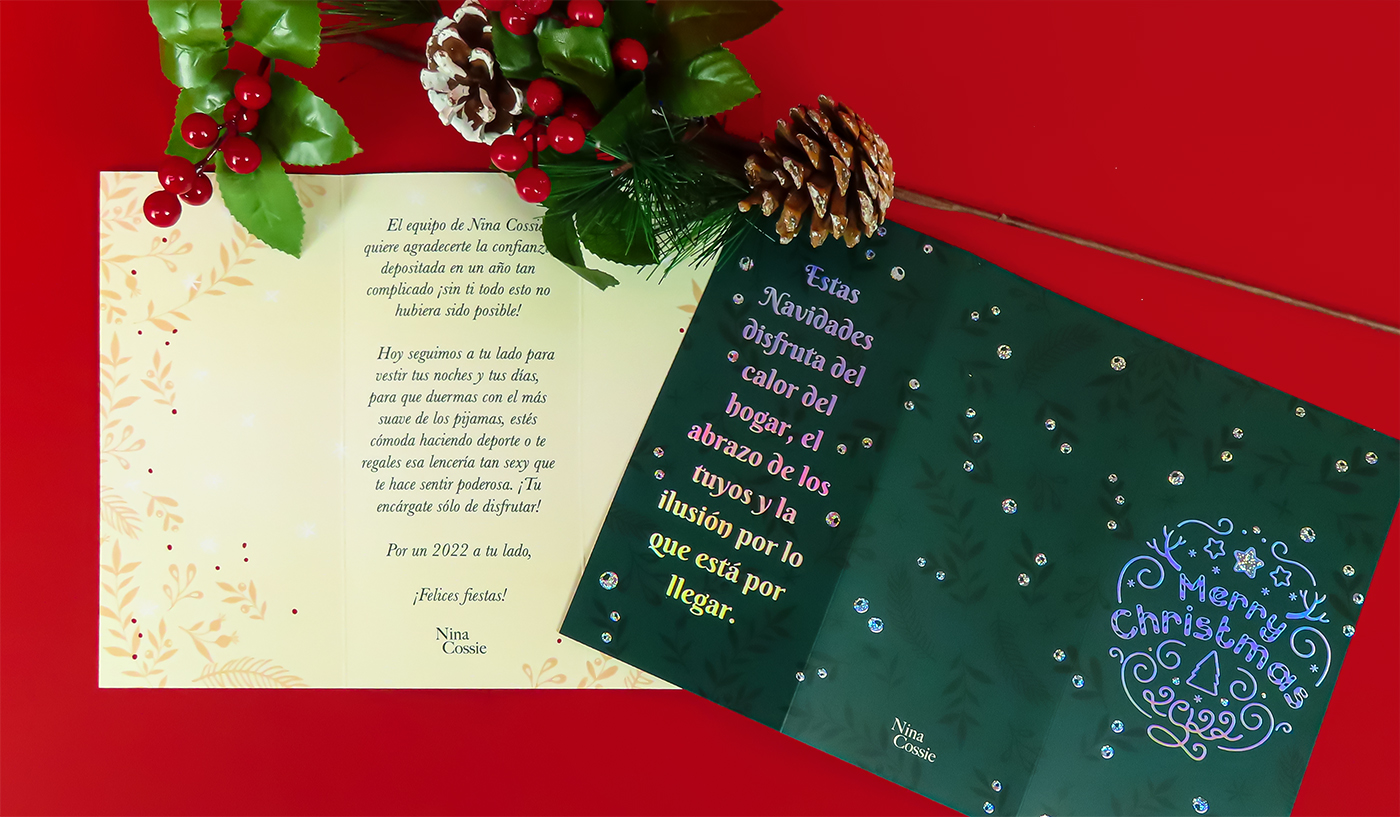 El equipo de Nina Cossie
quiere agradecerte la confianz
depositada en un año tan
complicado ¡sin ti todo esto no
hubiera sido posible!
Hoy seguimos a tu lado para
vestir tus noches y tus días,
para que duermas con el más
suave de los pijamas, estés
cómoda haciendo deporte o te
regales esa lencería tan sexy que
te hace sentir poderosa. ¡Tu
encárgate sólo de disfrutar!
Por un 2022 a tu lado,
¡Felices fiestas!
Nina
Cossie
Estas
Navidades
disfruta del
calor del
hogar, el
abrazo de los
tuyos y la
ilusión por lo
que está por
llegar.
Nina
Cossie
Merry
Christmas
2022